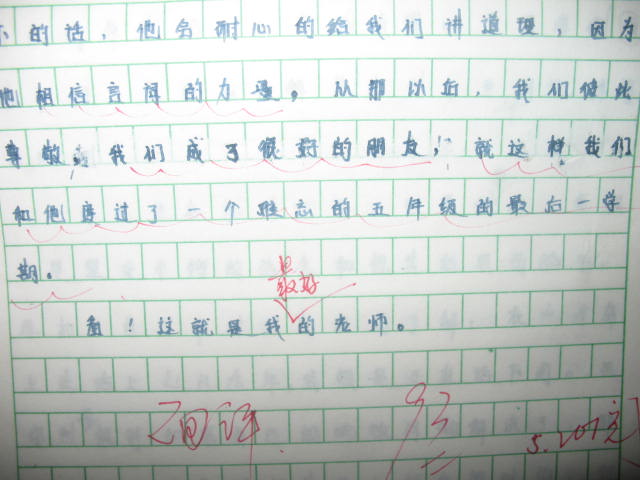 的话，他会耐心的给我们讲道理，因为
他相信言语的力量，从那以后，我们彼此
尊敬，我们成了很好的朋友，就这样我们
和他度过了一个难忘的五年级的最后一学
期。
最好
看！这就是我的老师。
93